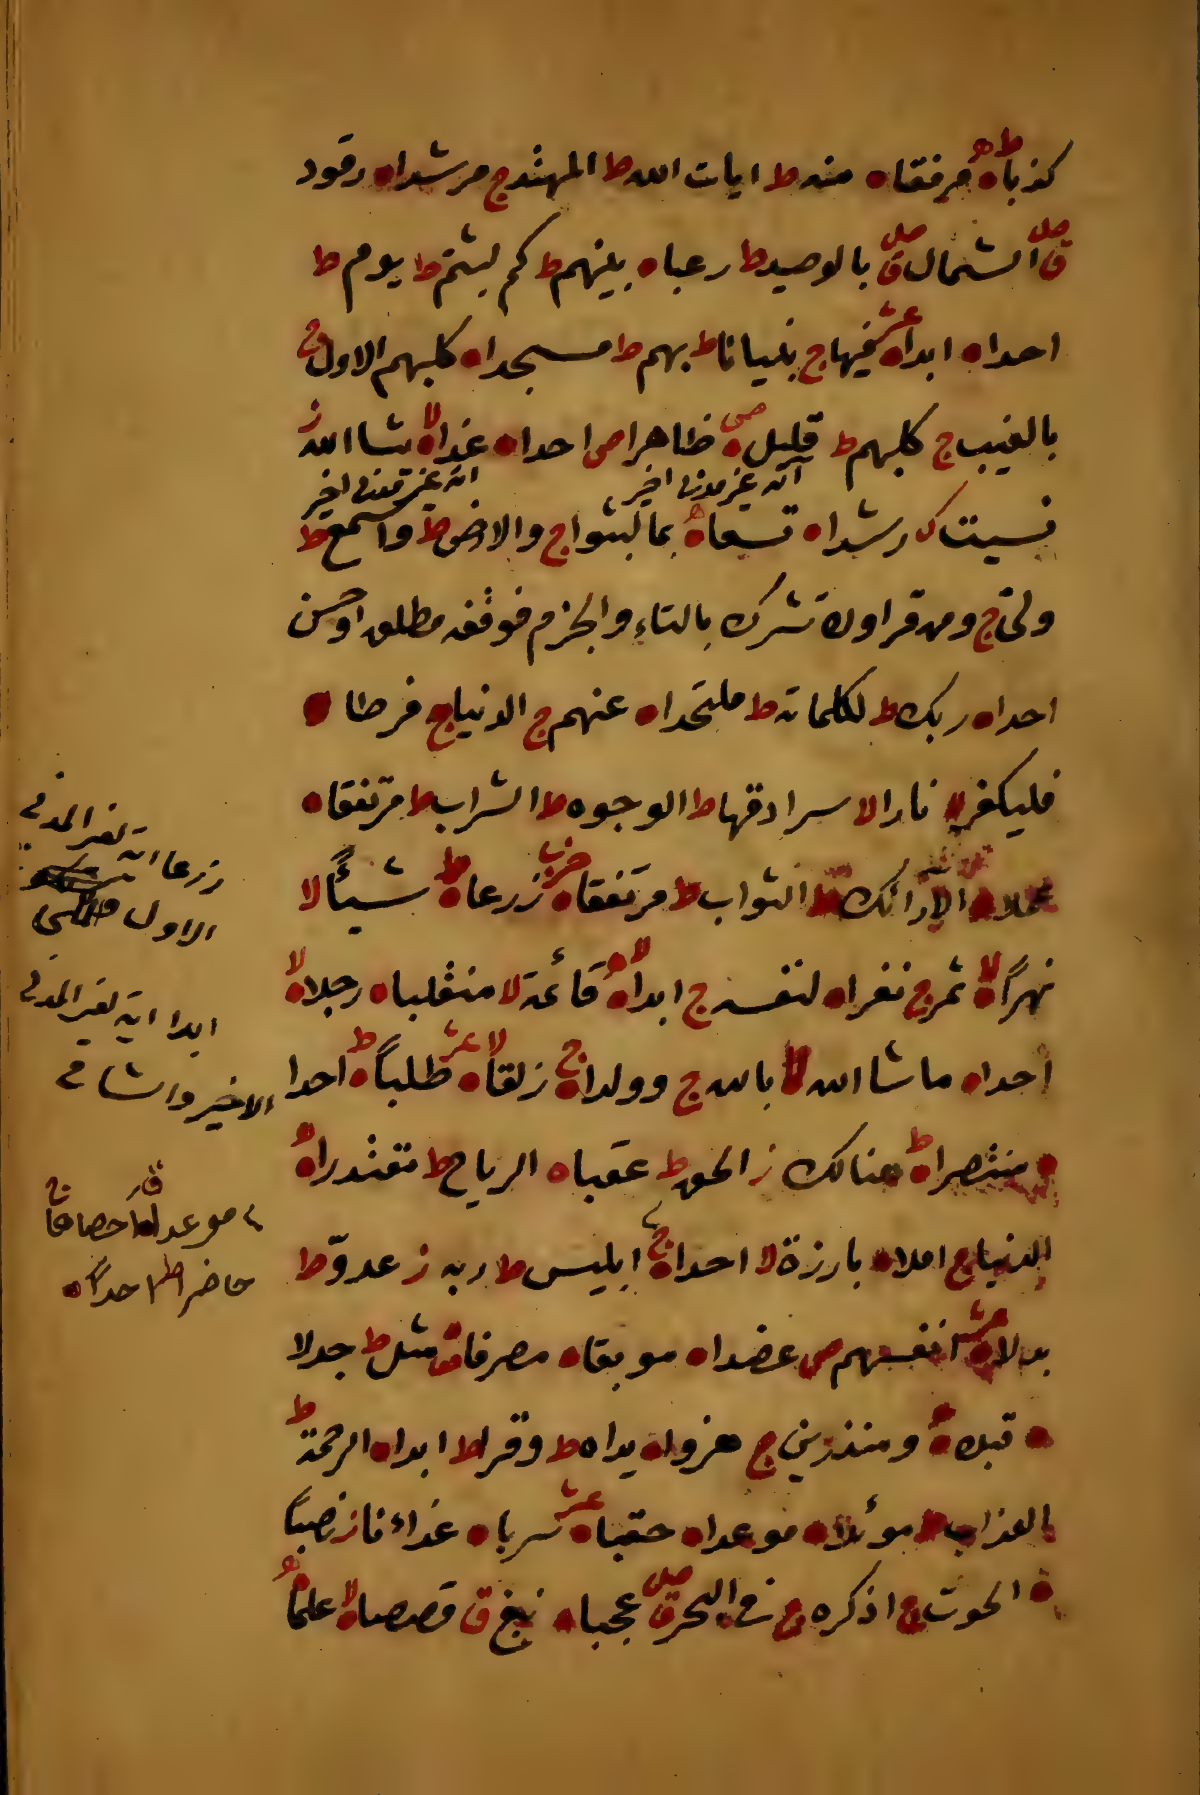 كذباه ط مرفقاه منه ط ايات الله ط المهتد ج مرشداه رقود
ق صلى الشمال ق صلى بالوصيد ط رعباه بينهم ط كم لبثتم ط يوم ط
احداه ابداه عشر فيها ج بنيانا ط بهم ط مسجداه كلبهم الاول ج
بالغيب ج كلبهم ط قليل ه ظاهرا ص احداه غداه لا يشا الله ز
اية غير مدنى اخير اية غير مدنى اخير
نسيت رشداه تسعاه بما لبثوا ج والارض ط واسمع ط
ولى ج ومن قرا ولا تشرك بالتاء والجزم فوقفه مطلق او حسن
احداه ربك ط لكلماته ط ملتحداه عنهم ج الدنيا ج فرطاه
فليكفر لا نارا لا سرادقها ط الوجوه ط الشراب ط مرتفقاه
عملاه الارائك ط الثواب ط مرتفقاه زرعاه ط شيئًا لا
نهرًا لا ثمر ج نفراه لنفسه ج ابداه لا قائمة لا منقلباه رجلاه لا
احداه ماشا الله لا بالله ج وولداه ج زلقاه لا عشر طلباً ط احدا
ه منتصراه ط هنالك ز الحق ط عقباه الرياح ط مقتدراه
الدنيا ج املاه بارزة لا احداه ج ابليس ط ربه ز عدوّ ط
بدلاه عشر انفسهم ص عضداه موبقاه مصرفاه مثل ط جدلا
ه قبلاه ومنذرين ج هزواه يداه ط وقرا ط ابداه الرحمة ط
العذاب ط موئلاه موعداه حقباه عشر سرباه غداءنا ز نصبًا
ه الحوت ج اذكره ج فى البحر ق صلى عجباه نبغ ق قصصاه لا علمًا
زرعا اية لغير المدنى
الاول والمكى
ابدا اية لغير المدنى
الاخير والشامى
موعداه احصاها ج
حاضرا ط احداً ه